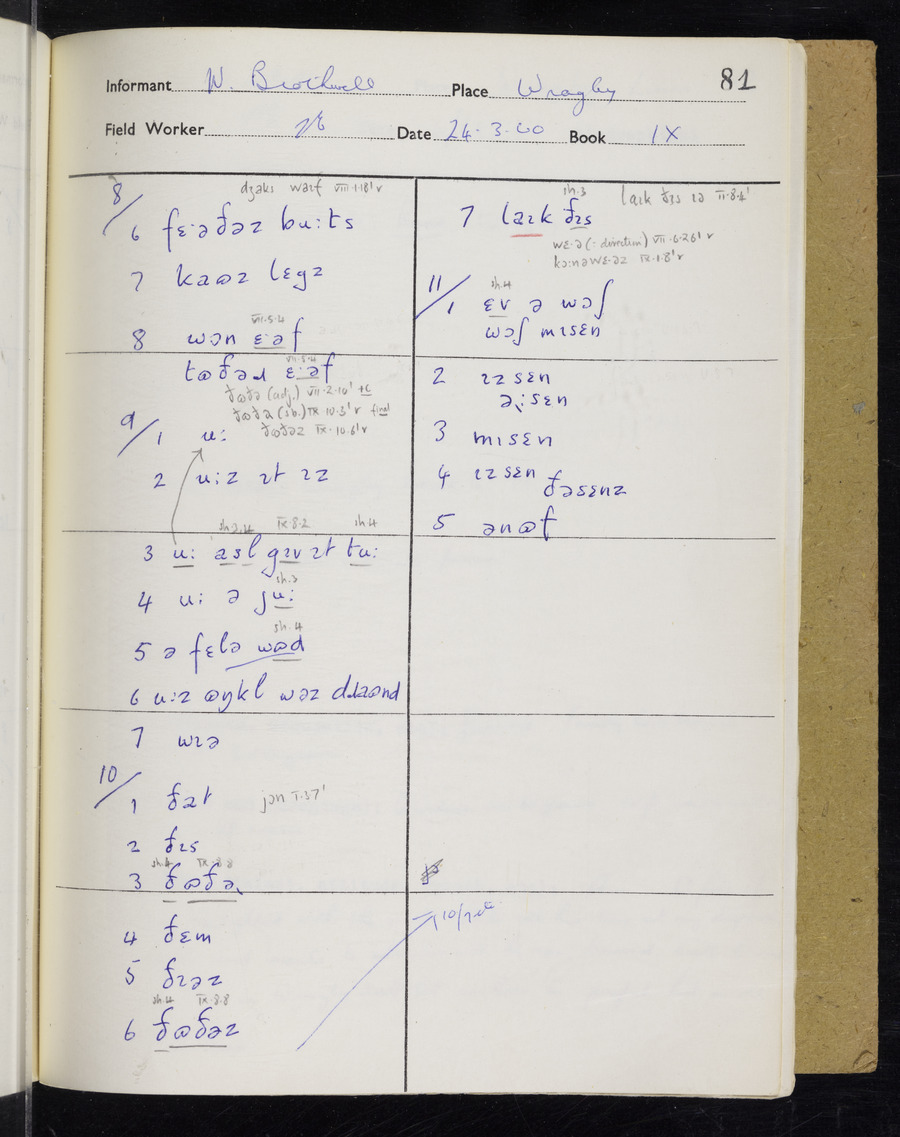 81
Informant W. Brothwell Place Wragby
Field Worker Date 24.3.60 Book IX
8/
dʒaks waɪf VIII.1.18' r
6 fɛ·əðəz bu:ts
7 kaʊz lɛgz
VII.5.4
8 wɔn ɛ·əf
VII.5.4
tʊðəɹ ɛ·əf
ðʊðə (adj.) VII.2.10' +C
ðʊðə (sb.) IX 10.3' r final
ðʊðəz IX.10.6' r
9/
1 u:
2 u:z ɪt ɪz
sh.2,4 IX.8.2 sh.4
3 u: asl gɪv ɪt tu:
sh.3
4 u: ə ju:
sh.4
5 ə fɛlə wʊd
6 u:z ʊŋkl wəz dɹaʊnd
7 wɪə
10/
1 ðat jɔn I.3.7'
2 ðɪs
sh.4 IX.8.8
3 ðʊðə
4 ðɛm
5 ðɪəz
sh.4 IX.8.8
6 ðʊðəz
sh.3 laɪk ðɪs ɪə II.8.4'
7 laɪk ðɪs
wɛ·ə (: direction) VII.6.26' r
kɔ:nəwɛ·əz IX.1.8' r
11/
sh.4
1 ɛv ə wɔʃ
wɔʃ mɪsɛn
2 ɪzsɛn
ə:sɛn
3 mɪsɛn
4 ɪzsɛn
ðəsɛnz
5 ənʊf
10/7 etc